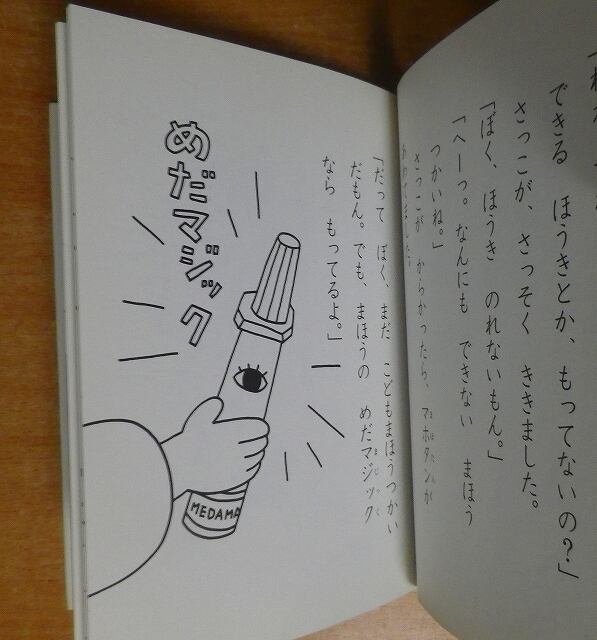 できる ほうきとか、もってないの？」
さっこが、さっそく ききました。
「ぼく、ほうき のれないもん。」
「へーっ。なんにも できない まほう
つかいね。」
さっこが からかったら、マホタンが
「だって ぼく、まだ こどもまほうつかい
だもん。でも、まほうの めだマジック
なら もってるよ。」
めだマジック
MEDAMA